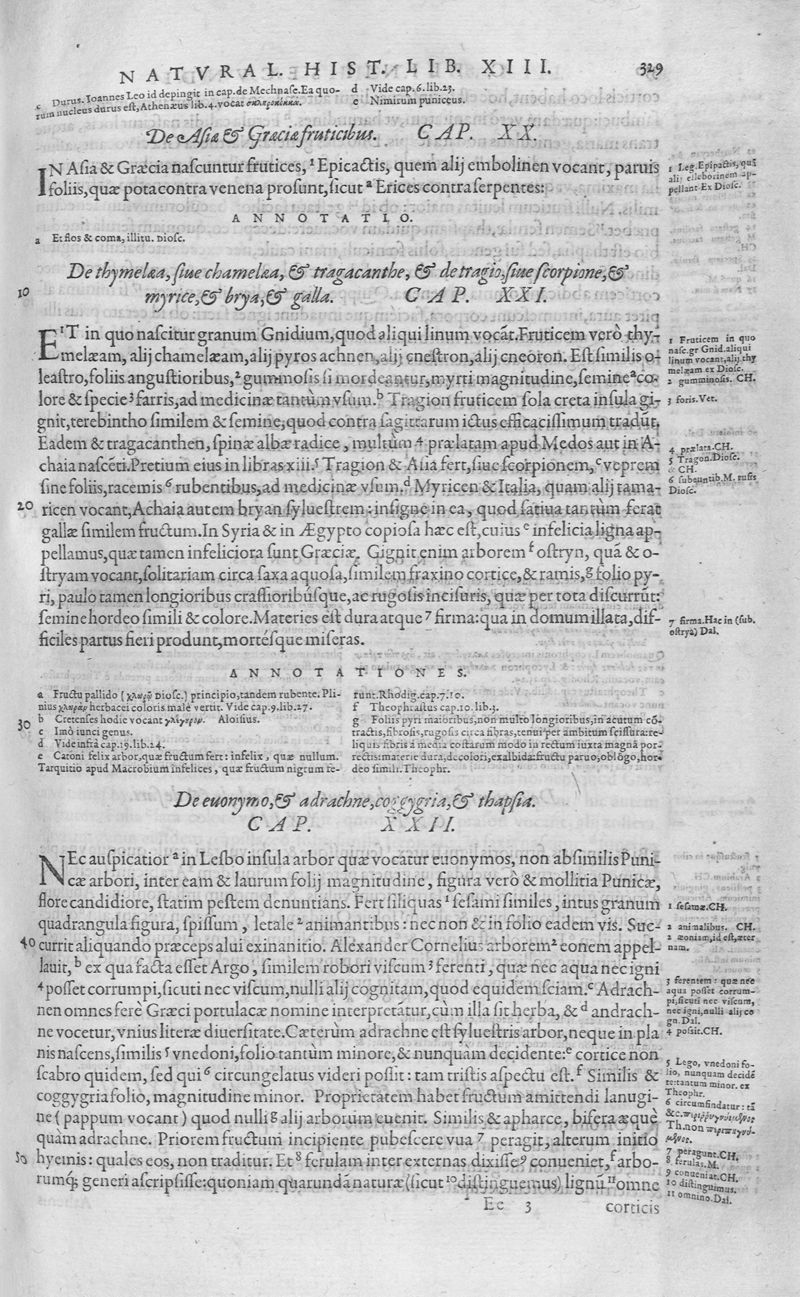 NATVRAL. HIST. LIB. XIII. 329
c Durus. Ioannes Leo id depingit in cap. de Mechnase. Ea quo-
rum nucleus durus est, Athenæus lib. 4. vocat
d Vide cap. 6. lib. 23.
e Nimirum puniceus.
De Asia & Græcia fruticibus. CAP. XX.
IN Asia & Græcia nascuntur frutices, ¹ Epicactis, quem alij embolinen vocant, paruis
foliis, quæ pota contra venena prosunt, sicut ᵃ Erices contra serpentes:
1 Leg. Epipactis, quã
alij elleborinem ap-
pellant Ex Diosc.
ANNOTATIO.
a Et flos & coma, illitu. Diosc.
De thymelæa, siue chamelæa, & tragacanthe, & de tragio, siue scorpione, &
10 myrice, & brya, & galla. CAP. XXI.
E¹T in quo nascitur granum Gnidium, quod aliqui linum vocãt. Fruticem verò thy-
melæam, alij chamelæam, alij pyros achnen, alij cnestron, alij cneoron. Est similis o-
leastro, foliis angustioribus, ² gummosis si mordeantur, myrti magnitudine, semine ᵃ co-
lore & specie ³ farris, ad medicinæ tantùm vsum. ᵇ Tragion fruticem sola creta insula gi-
gnit, terebintho similem & semine, quod contra sagittarum ictus efficacissimum tradũt.
Eadem & tragacanthen, spinæ albæ radice, multùm ⁴ prælatam apud Medos aut in A-
chaia nascẽti. Pretium eius in libras xiii. ⁵ Tragion & Asia fert, siue scorpionem, ᶜ veprem
sine foliis, racemis ⁶ rubentibus, ad medicinæ vsum. ᵈ Myricen & Italia, quam alij tama-
20 ricen vocant, Achaia autem bryan syluestrem: insigne in ea, quod satiua tantum ferat
gallæ similem fructum. In Syria & in Ægypto copiosa hæc est, cuius ᵉ infelicia ligna ap-
pellamus, quæ tamen infeliciora sunt Græciæ. Gignit enim arborem ᶠ ostryn, quã & o-
stryam vocant, solitariam circa saxa aquosa, similem fraxino cortice, & ramis, ᵍ folio py-
ri, paulo tamen longioribus crassioribúsque, ac rugosis incisuris, quæ per tota discurrũt:
semine hordeo simili & colore. Materies est dura atque ⁷ firma: qua in domum illata, dif-
ficiles partus fieri produnt, mortésque miseras.
1 Fruticem in quo
nasc. gr Gnid. aliqui
linum vocant, alij thy
melæam ex Diosc.
2 gumminosis. CH.
3 foris. Vet.
4 prælata. CH.
5 Tragon. Diosc.
CH.
6 subeuntib. M. rufis
Diosc.
7 firma. Hac in (sub.
ostrya) Dal.
ANNOTATIONES.
a Fructu pallido ( Diosc.) principio, tandem rubente. Pli-
nius herbacei coloris malè vertit. Vide cap. 9. lib. 27.
30 b Cretenses hodie vocant Aloisius.
c Imò iunci genus.
d Vide infrà cap. 19. lib. 24.
e Catoni felix arbor, quæ fructum fert: infelix, quæ nullum.
Tarquitio apud Macrobium infelices, quæ fructum nigrum fe-
runt. Rhodig. cap. 7. 10.
f Theophrastus cap. 10. lib. 3.
g Foliis pyri maioribus, non multo longioribus, in acutum cõ-
tractis, fibrosis, rugosis circa fibras, tenui per ambitum scissura: re-
liquis fibris à media costarum modo in rectum iuxta magna por-
rectis: materie dura, decolori, exalbida: fructu paruo, oblõgo, hor-
deo simili. Theophr.
De euonymo, & adrachne, coggygria, & thapsia.
CAP. XXII.
NEc auspicatior ᵃ in Lesbo insula arbor quæ vocatur euonymos, non absimilis Puni-
cæ arbori, inter eam & laurum folij magnitudine, figura verò & mollitia Punicæ,
flore candidiore, statim pestem denuntians. Fert siliquas ¹ sesami similes, intus granum
quadrangula figura, spissum, letale ² animantibus: nec non & in folio eadem vis. Suc-
40 currit aliquando præceps alui exinanitio. Alexander Cornelius arborem ² eonem appel-
lauit, ᵇ ex qua facta esset Argo, similem robori viscum ³ ferenti, quæ nec aqua nec igni
⁴ posset corrumpi, sicuti nec viscum, nulli alij cognitam, quod equidem sciam. ᶜ Adrach-
nen omnes ferè Græci portulacæ nomine interpretãtur, cùm illa sit herba, & ᵈ andrach-
ne vocetur, vnius literæ diuersitate. Cæterùm adrachne est syluestris arbor, neque in pla
nis nascens, similis ⁵ vnedoni, folio tantùm minore, & nunquàm decidente: ᵉ cortice non
scabro quidem, sed qui ⁶ circungelatus videri possit: tam tristis aspectu est. ᶠ Similis &
coggygria folio, magnitudine minor. Proprietatem habet fructum amittendi lanugi-
ne (pappum vocant) quod nulli ᵍ alij arborum euenit. Similis & apharce, bifera æquè
quàm adrachne. Priorem fructum incipiente pubescere vua ⁷ peragit, alterum initio
50 hyemis: quales eos, non traditur. Et ⁸ ferulam inter externas dixisse ⁹ conueniet, ᶠ arbo-
rumq; generi ascripsisse: quoniam quarundã naturæ (sicut ¹⁰ distinguemus) lignũ ¹¹ omne
1 sesamæ. CH.
2 animalibus. CH.
2 æoniam, id est, æter
nam.
3 ferentem: quæ nec
aqua posset corrum-
pi, sicuti nec viscum,
nec igni, nulli alij co
gn. Dal.
4 possit. CH.
5 Lego, vnedoni fo-
lio, nunquam decidẽ
te: tantum minor. ex
Theophr.
6 circumfindatur: tã
&c.
Th. non
7 peragunt. CH.
8 ferulas. M.
9 conueniat. CH.
10 distinguimus.
11 omnino. Dal.
Ee 3 corticis